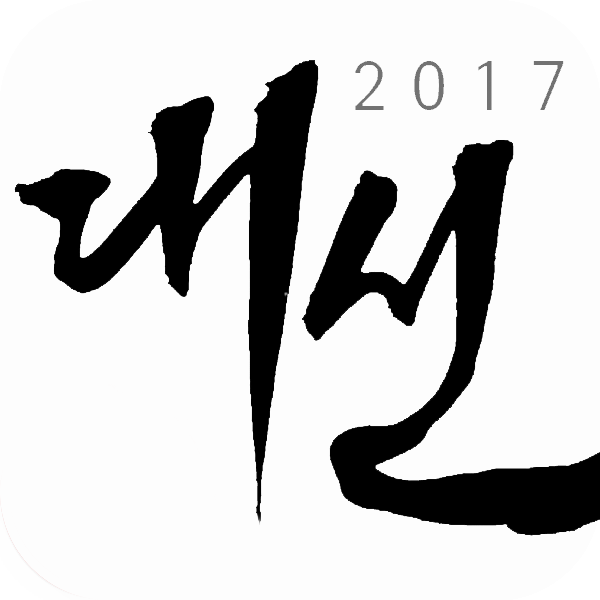 2017
대선